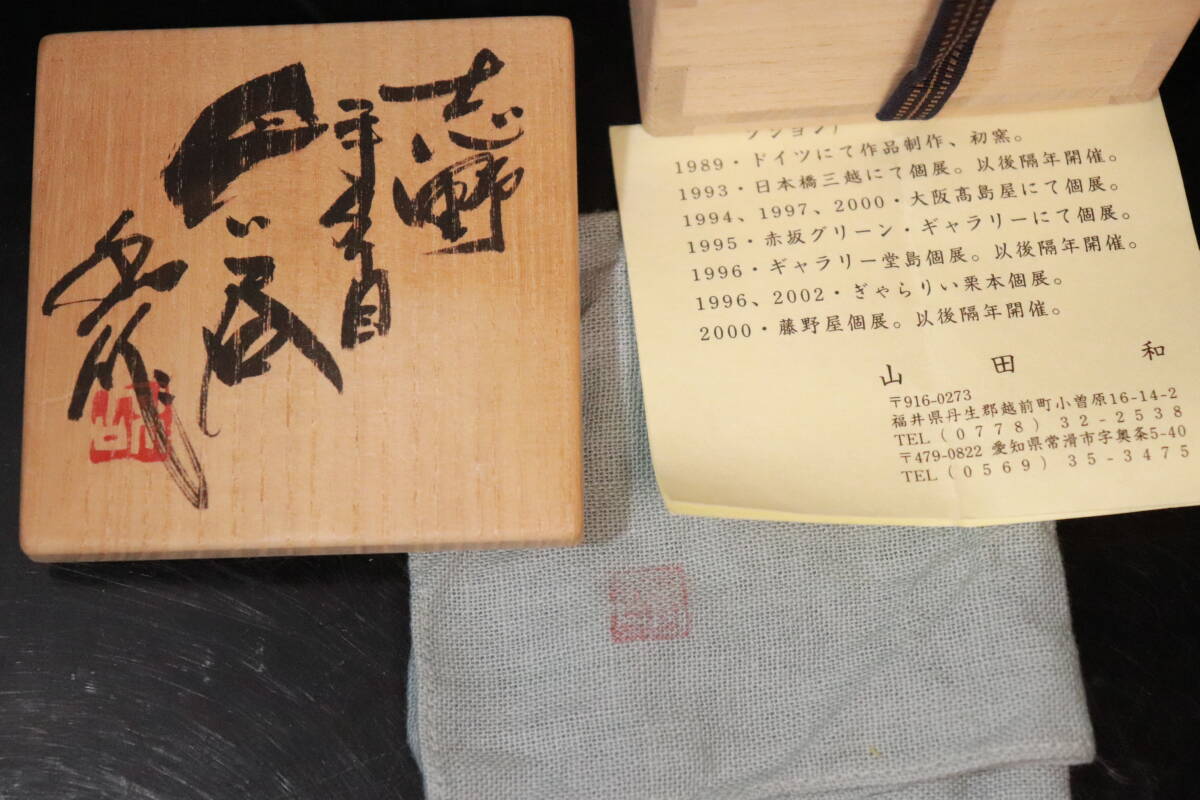 志野
ぐい呑
クション）
1989・ドイツにて作品制作、初窯。
1993・日本橋三越にて個展。以後隔年開催。
1994、1997、2000・大阪髙島屋にて個展。
1995・赤坂グリーン・ギャラリーにて個展。
1996・ギャラリー堂島個展。以後隔年開催。
1996、2002・ぎゃらりい栗本個展。
2000・藤野屋個展。以後隔年開催。
山田 和
〒916-0273
福井県丹生郡越前町小曽原16-14-2
TEL（0778）32-2538
〒479-0822 愛知県常滑市字奥条5-40
TEL（0569）35-3475